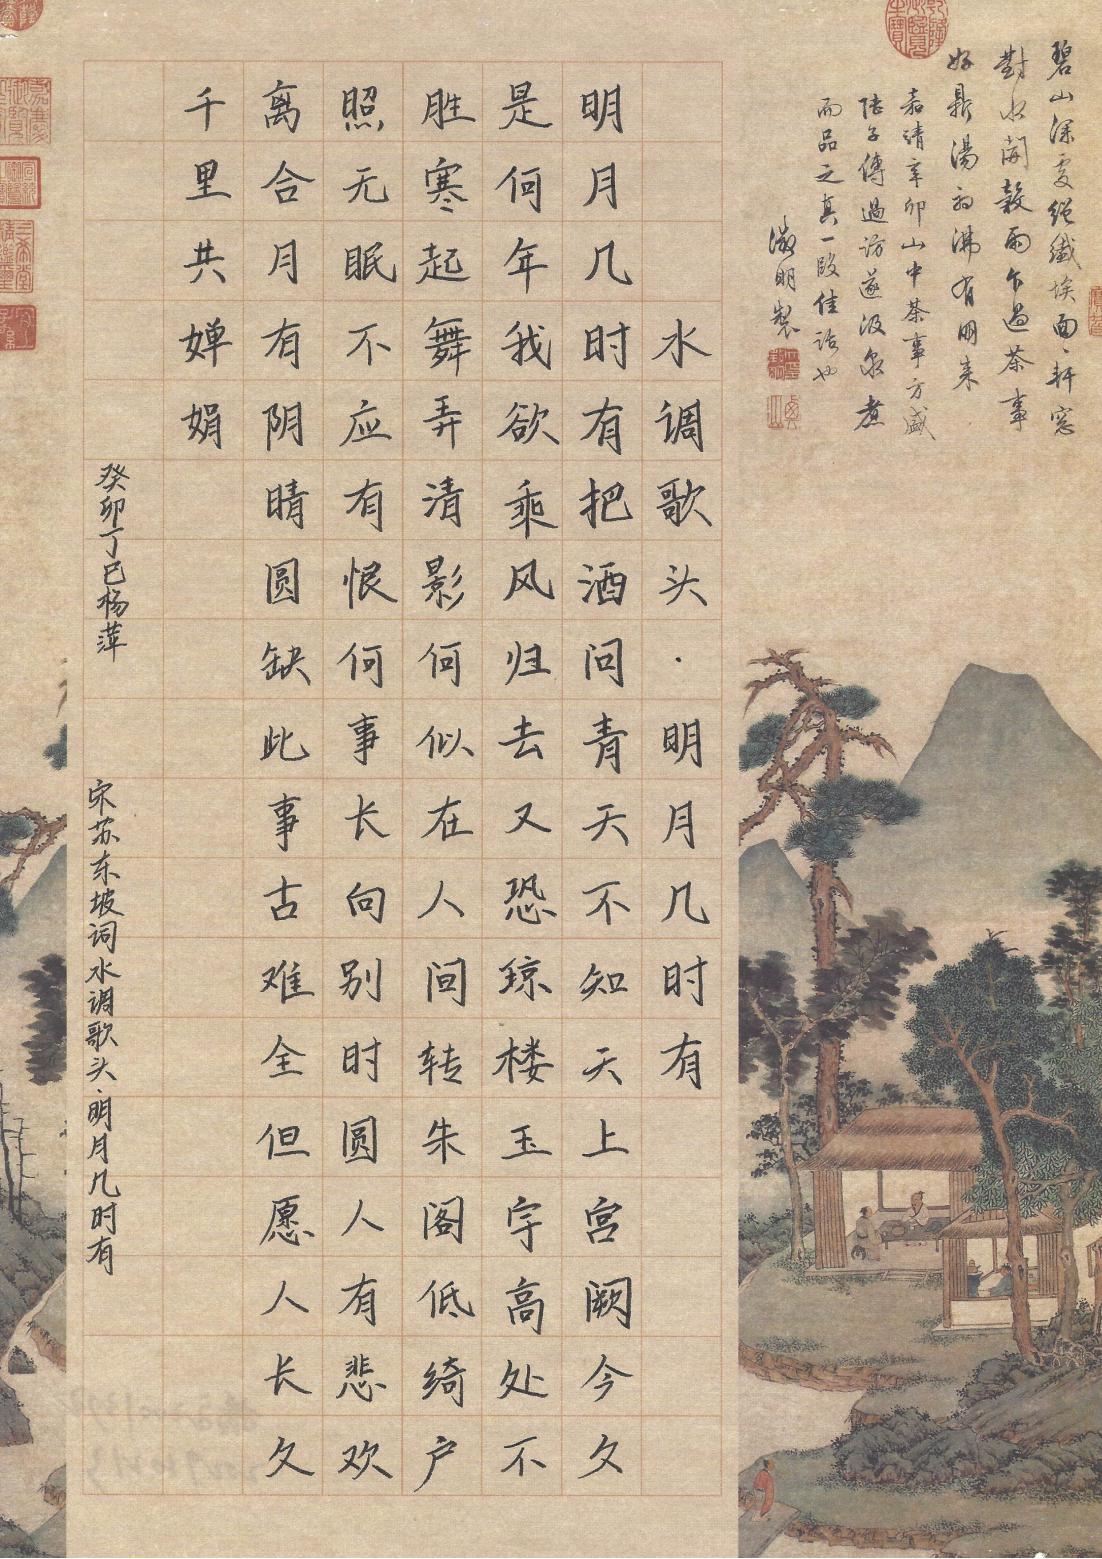 碧山深處絕纖埃面〻軒窓
對水開穀雨乍過茶事
好鼎湯初沸有朋来
嘉靖辛卯山中茶事方盛
陸子傅過訪遂汲泉煮
而品之真一段佳話也
徵明製
水调歌头·明月几时有
明月几时有把酒问青天不知天上宫阙今夕
是何年我欲乘风归去又恐琼楼玉宇高处不
胜寒起舞弄清影何似在人间转朱阁低绮户
照无眠不应有恨何事长向别时圆人有悲欢
离合月有阴晴圆缺此事古难全但愿人长久
千里共婵娟
癸卯丁巳杨萍
宋苏东坡词水调歌头·明月几时有